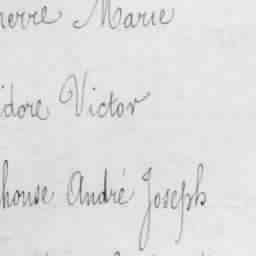 ierre Marie
idore Victor
honse André Joseph